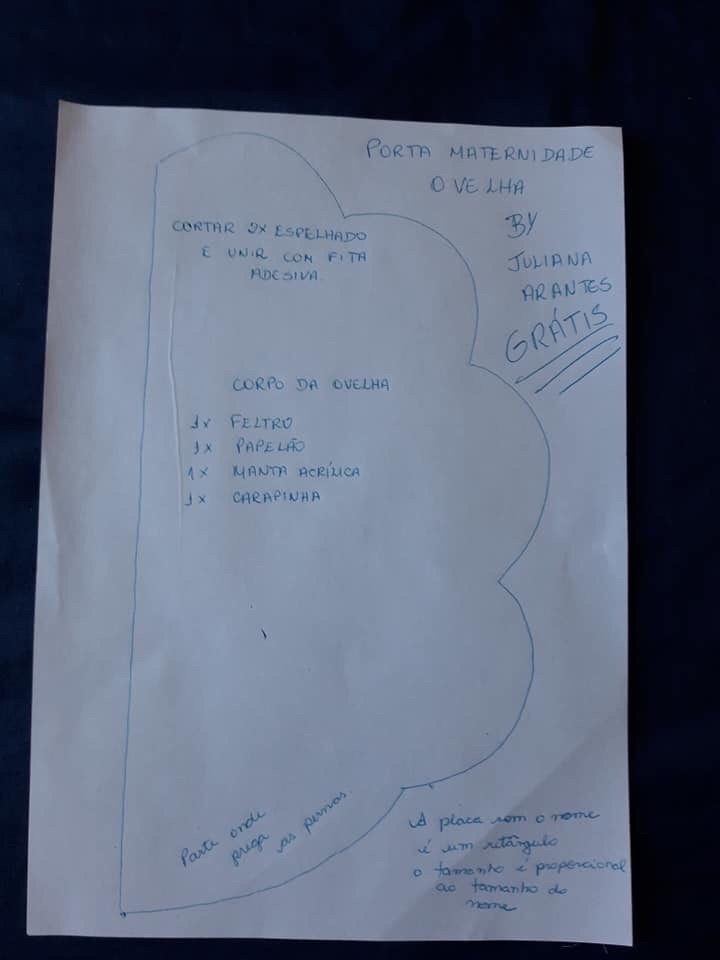 PORTA MATERNIDADE
OVELHA
BY
JULIANA
ARANTES
GRÁTIS
CORTAR 2X ESPELHADO
E UNIR COM FITA
ADESIVA.
CORPO DA OVELHA
1x FELTRO
1x PAPELÃO
1x MANTA ACRÍLICA
1x CARAPINHA
Parte onde
prega as pernas.
A placa com o nome
é um retângulo
o tamanho é proporcional
ao tamanho do
nome